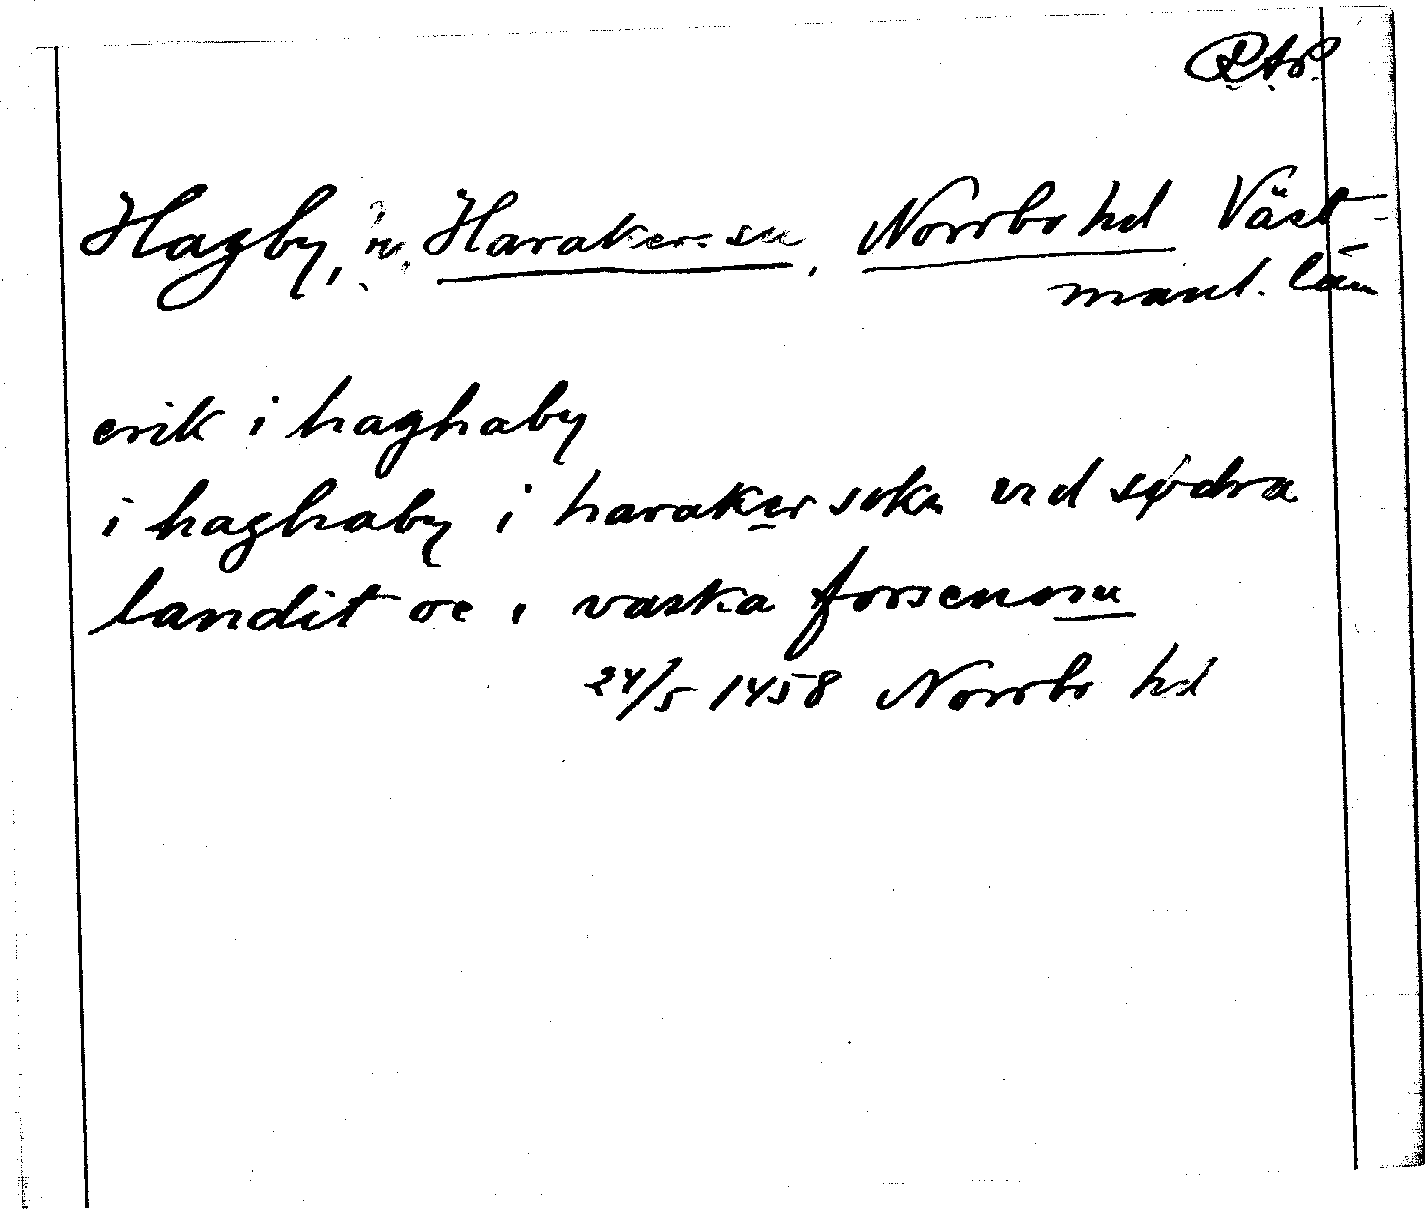 Hagby, Harakers sn, Norrbo hd Väst-
manl. län
erik i haghaby
i haghaby i haraker sokn vid sødra
landit oc i vaska forsenom
24/5 1458 Norrbo hd